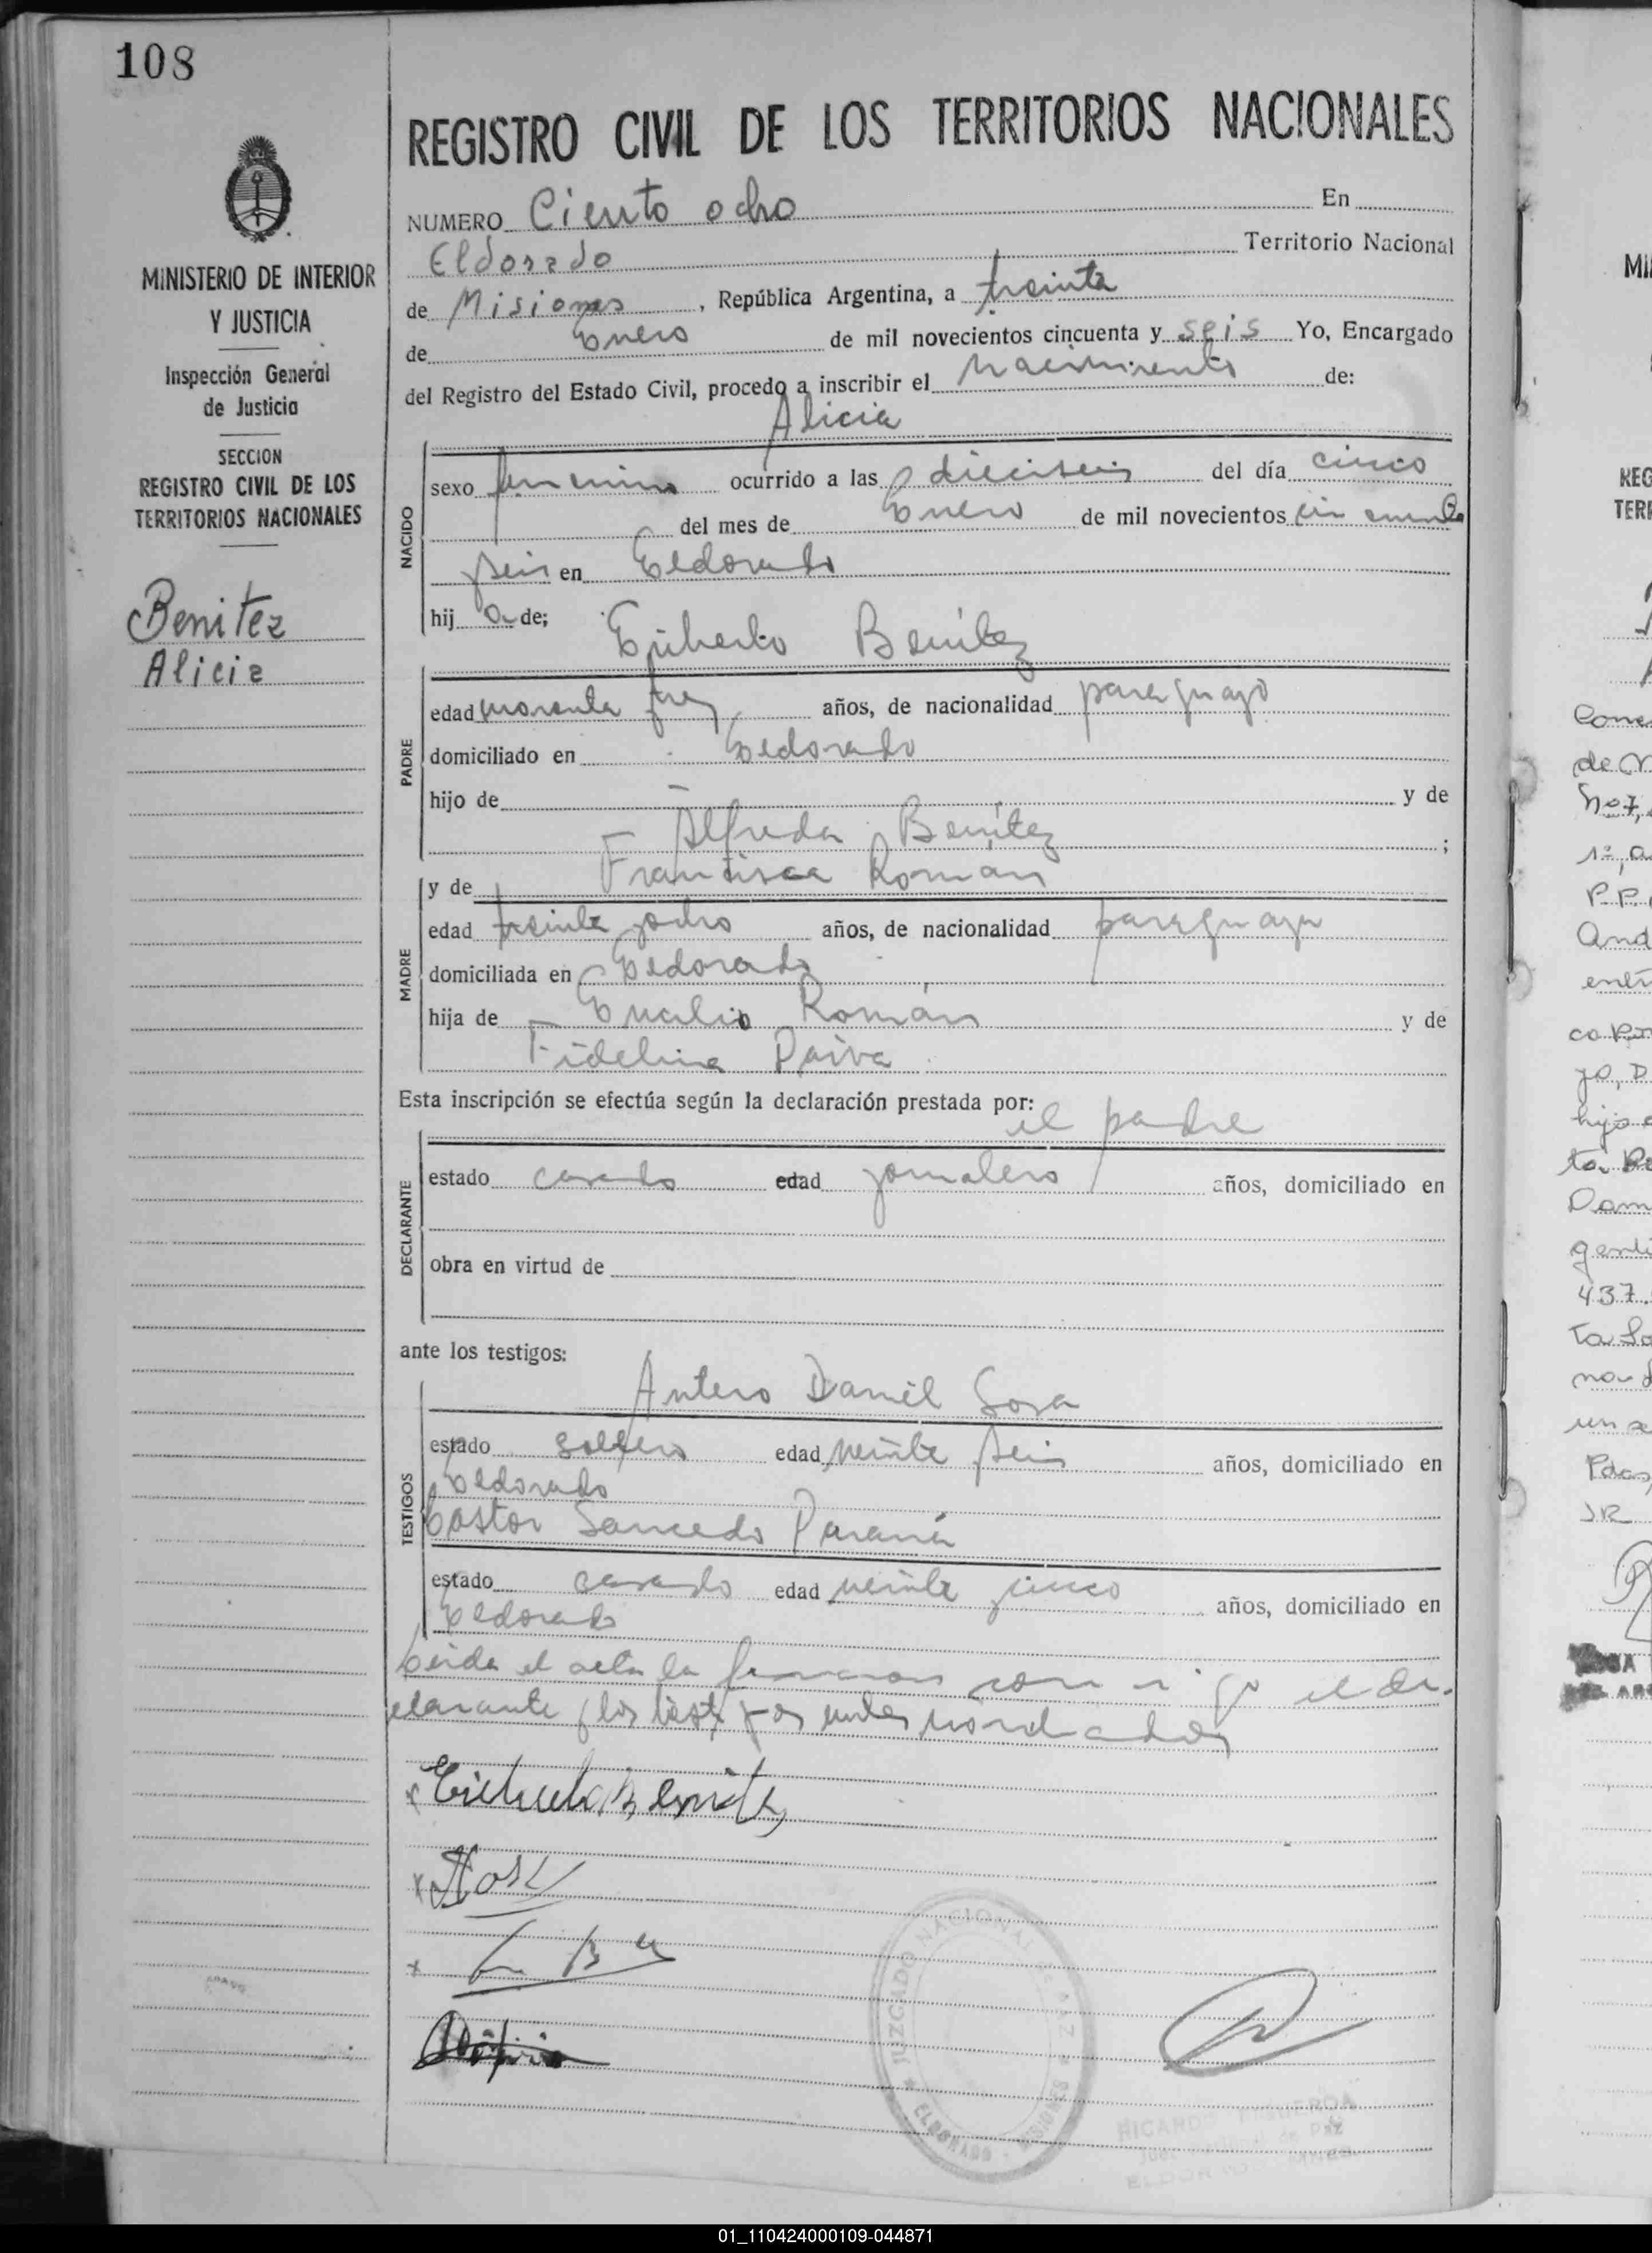 108
REGISTRO CIVIL DE LOS TERRITORIOS NACIONALES
MINISTERIO DE INTERIOR
Y JUSTICIA
Inspección General
de Justicia
SECCION
REGISTRO CIVIL DE LOS
TERRITORIOS NACIONALES
Benitez
Alicia
NUMERO Ciento ocho En
Eldorado Territorio Nacional
de Misiones, República Argentina, a treinta
de Enero de mil novecientos cincuenta y seis Yo, Encargado
del Registro del Estado Civil, procedo a inscribir el nacimiento de:
Alicia
NACIDO
sexo femenino ocurrido a las dieciseis del día cinco
del mes de Enero de mil novecientos cincuenta
seis en Eldorado
hij a de;
Benítez
PADRE
edad años, de nacionalidad paraguayo
domiciliado en Eldorado
hijo de y de
Benítez ;
y de Francisca Román
MADRE
edad treinta y ocho años, de nacionalidad paraguaya
domiciliada en Eldorado
hija de Román y de
Fidelina Paiva
Esta inscripción se efectúa según la declaración prestada por:
el padre
DECLARANTE
estado casado edad jornalero años, domiciliado en
obra en virtud de
ante los testigos:
Antero Daniel Sosa
TESTIGOS
estado soltero edad veinte seis años, domiciliado en
Eldorado
Castor Saucedo Paraná
estado casado edad veinte cinco años, domiciliado en
Eldorado
Leida el acta la firmaron conmigo el de-
clarante y los testigos
JUZGADO NACIONAL DE PAZ
ELDORADO MISIONES
RICARDO FIGUEROA
01_110424000109-044871